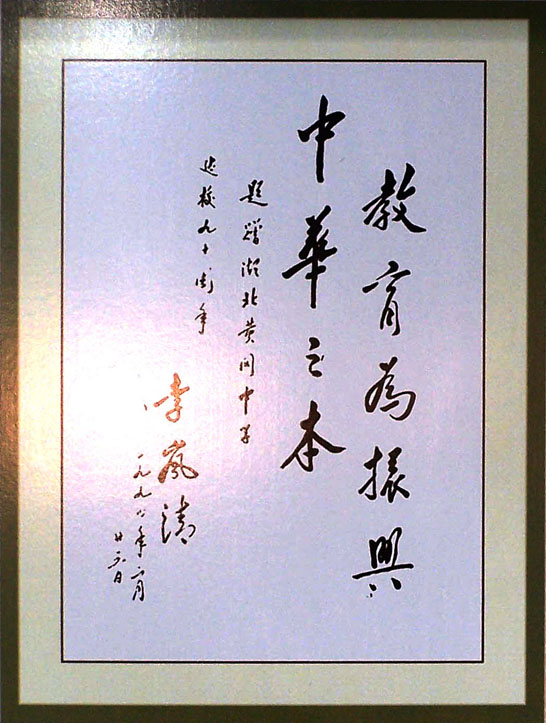 教育為振興
中華之本
題贈湖北黄冈中学
建校九十周年
李岚清
一九九六年二月
廿六日